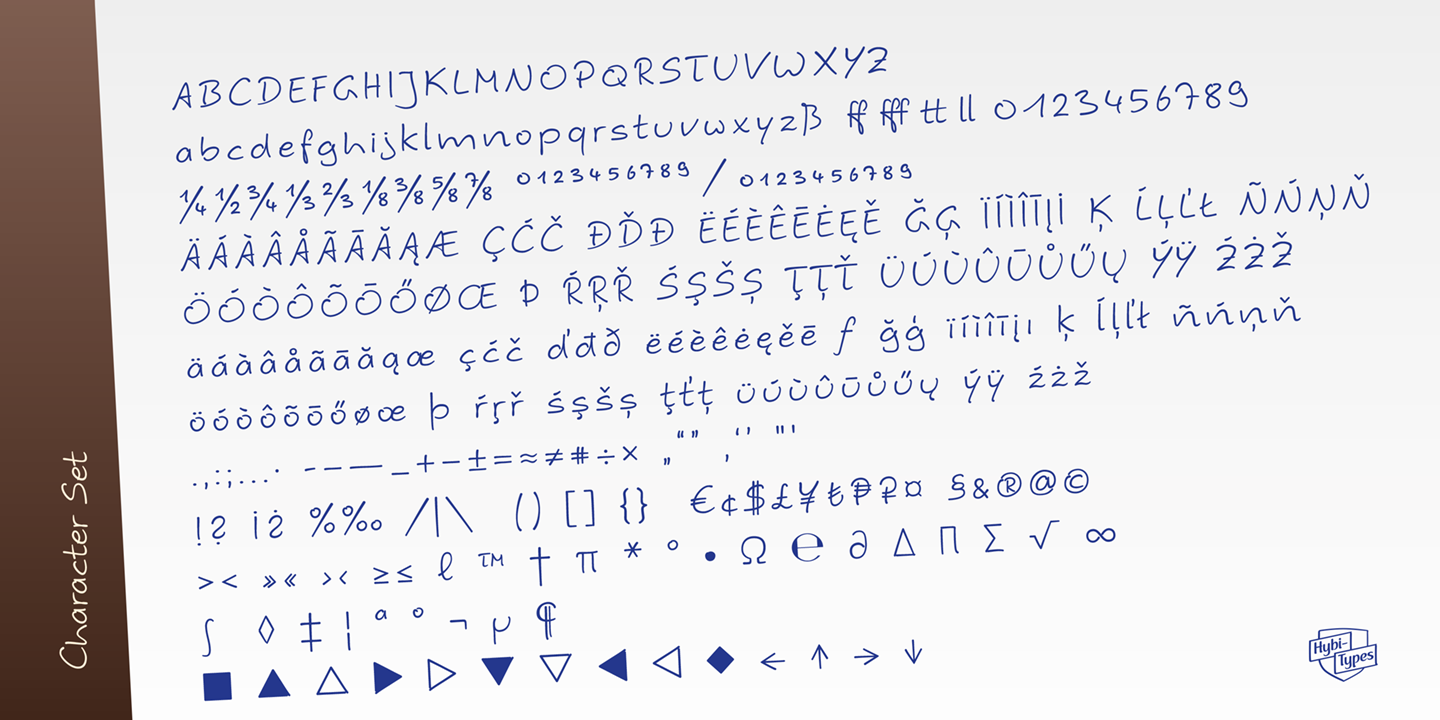 ABCDEFGHIJKLMNOPQRSTUVWXYZ
abcdefghijklmnopqrstuvwxyzß ff fff tt ll 0123456789
¼ ½ ¾ ⅓ ⅔ ⅛ ⅜ ⅝ ⅞ 0123456789 / 0123456789
ÄÁÀÂÅÃĀĂĄÆ ÇĆČ ĐĎÐ ËÉÈÊĒĖĘĚ ĞĢ ÏÍÌÎĪĮİ Ķ ĹĻĽŁ ÑŃŅŇ
ÖÓÒÔÕŌŐØŒ Þ ŔŖŘ ŚŞŠȘ ŢȚŤ ÜÚÙÛŪŮŰŲ ÝŸ ŹŻŽ
äáàâåãāăąæ çćč ďđð ëéèêėęěē ƒ ğģ ïíìîīįı ķ ĺļľł ñńņň
öóòôõōőøœ þ ŕŗř śşšș ţťț üúùûūůűų ýÿ źżž
.,:;…· -–—_+−±=≈≠#÷× „“” ‚‘’ "'
!? ¡¿ %‰ /|\ () [] {} €¢$£¥₺₱₽¤ §&®@©
>< »« ›‹ ≥≤ ℓ ™ † π * ° • Ω ℮ ∂ ∆ ∏ ∑ √ ∞
∫ ◊ ‡ ¦ ª º ¬ µ ¶
■ ▲ △ ▶ ▷ ▼ ▽ ◀ ◁ ◆ ← ↑ → ↓
Character Set
Hybi-
Types